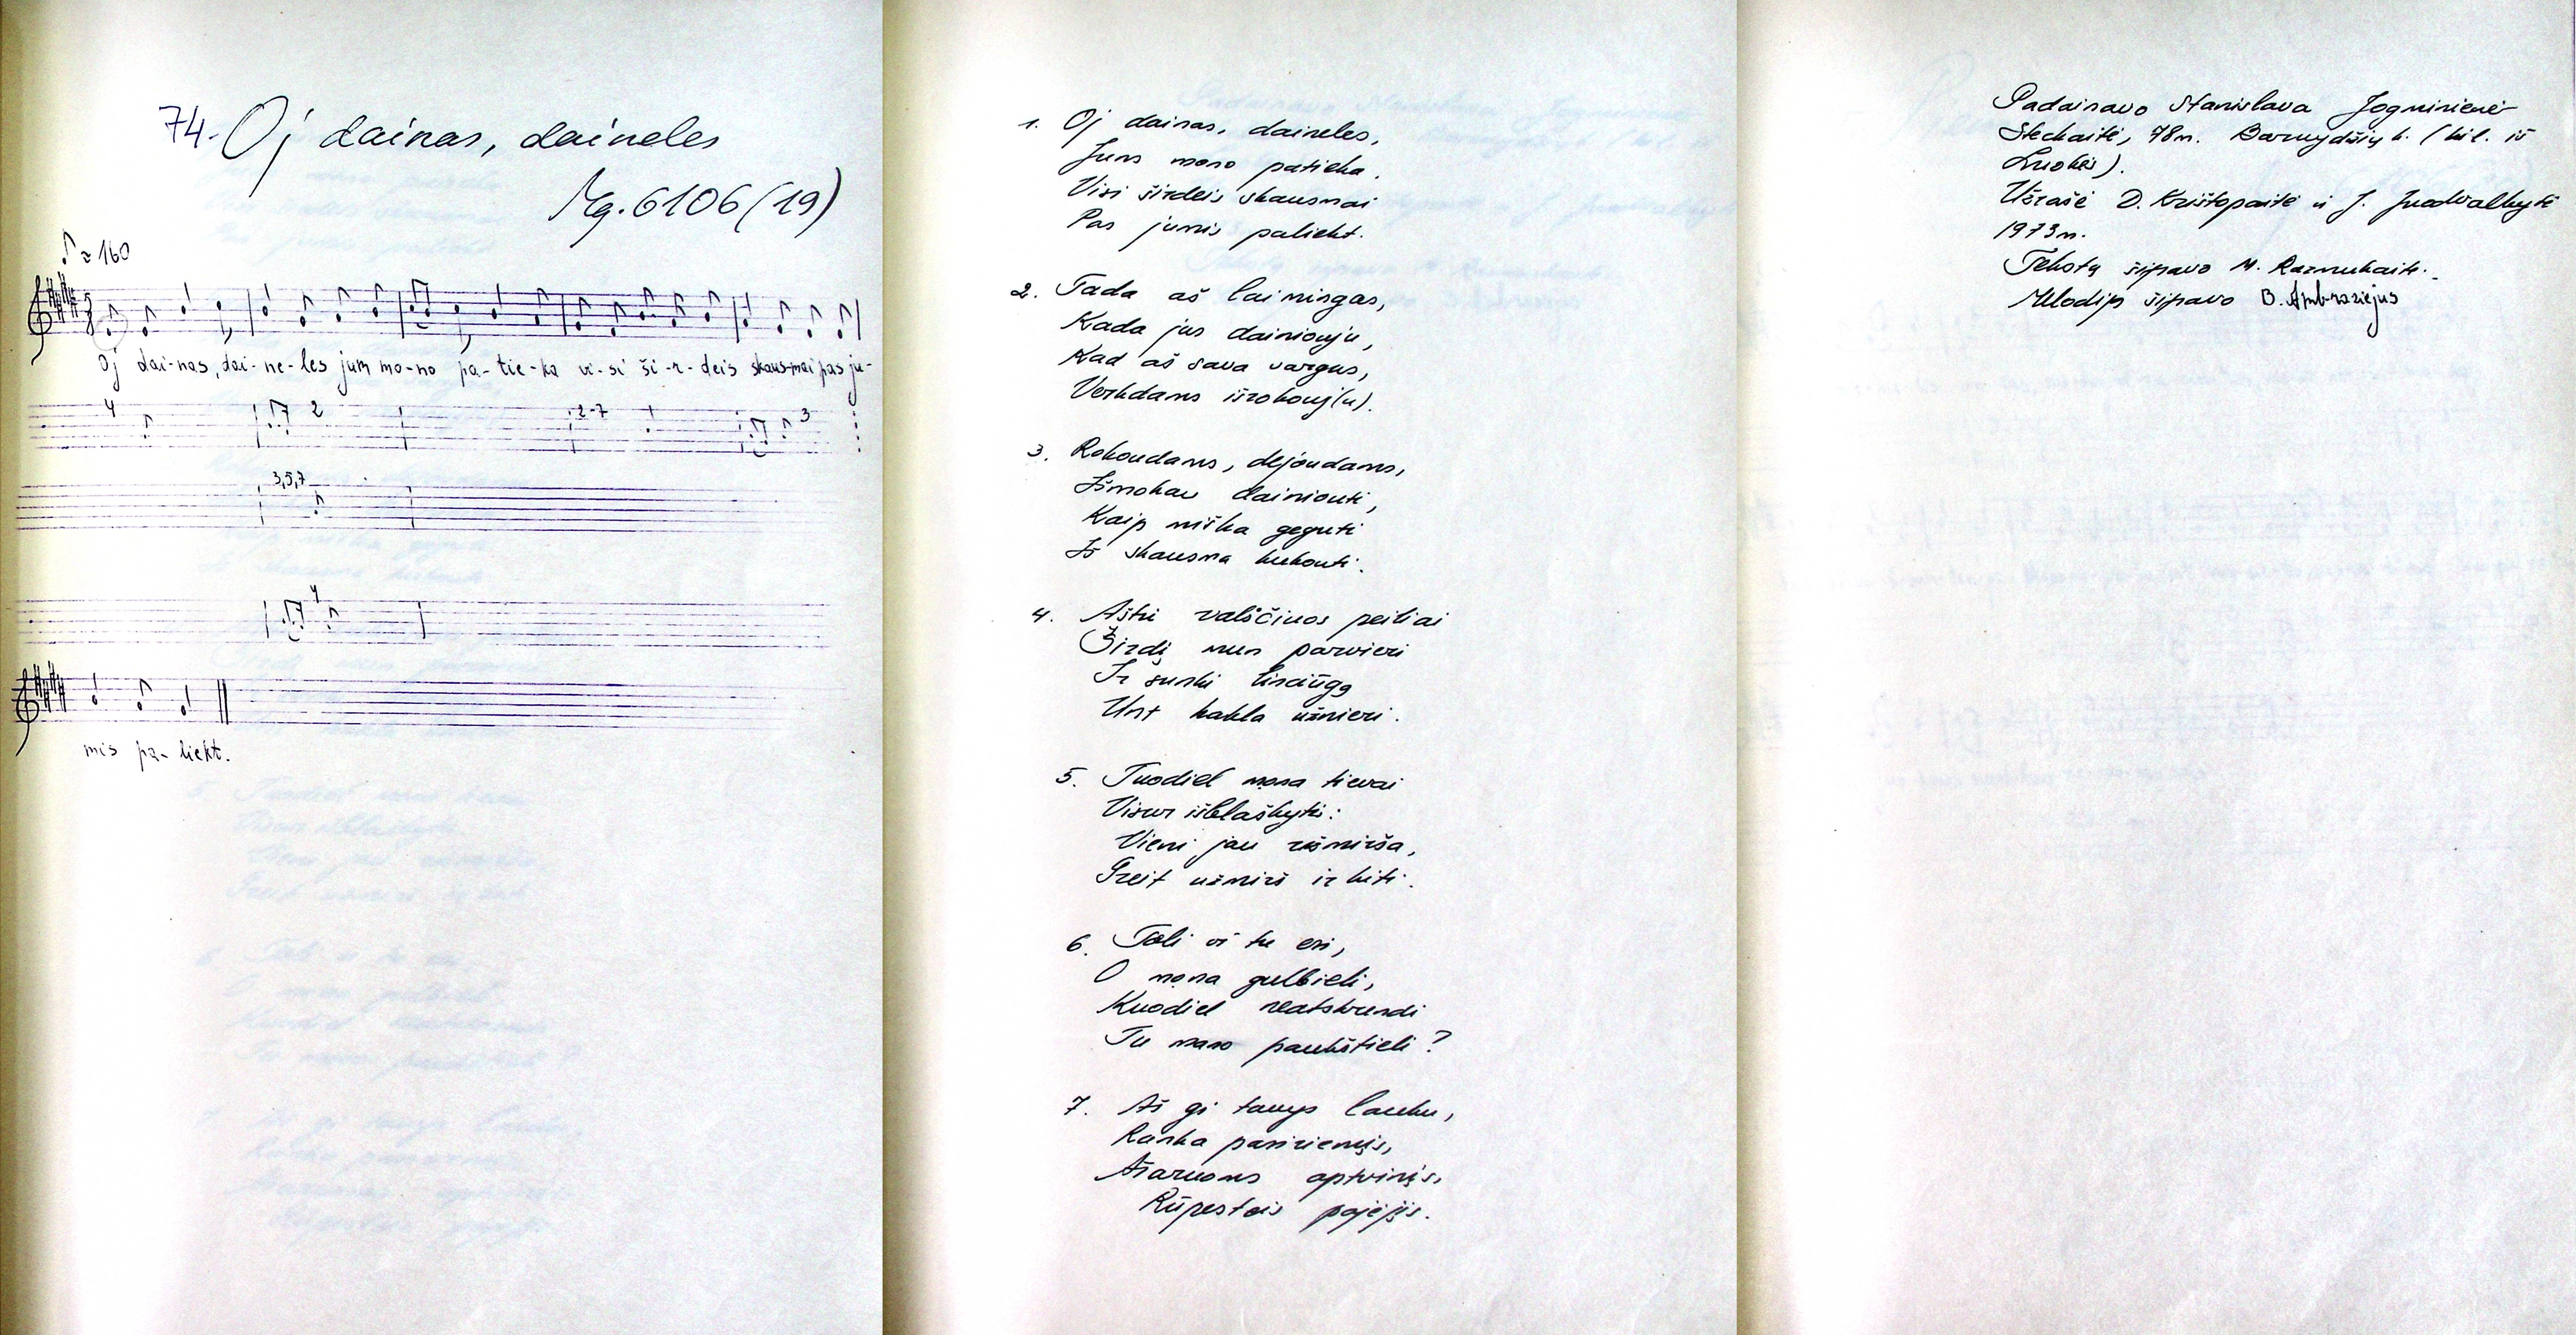 74. Oj dainas, daineles
Mg. 6106 (19)
♪ ≈ 160
Oj dai-nas, dai-ne-les jum mo-no pa-tie-ka vi-si ši-r-deis skaus-mai pas ju-
4 2 2-7 3
3,5,7
4
mis pa-liekt.
1. Oj dainas, daineles,
Jums mono patieka.
Visi širdeis skausmai
Pas jumis paliekt.
2. Tada aš laimingas,
Kada jus dainiouju,
Kad aš sava vargus,
Verkdams išrokouj(u).
3. Rokoudams, dejoudams,
Išmokau dainiouti,
Kaip miška geguti
Iš skausma kukouti.
4. Aštri valščinos peiliai
Širdį mun parvieri
Ir sunki linciūgą
Unt kakla užnieri.
5. Tuodiel mona tievai
Visur išblaškyti:
Vieni jau užmirša,
Greit užmirš ir kiti.
6. Toli vi tu esi,
O mona gulbieli,
Kuodiel neatskrendi
Tu mano paukštieli?
7. Aš gi tavys lauku,
Ranka pasiriemįs,
Ašaruoms aptvinįs,
Rūpesteis pajėjįs.
Padainavo Stanislava Jogminienė-
Steckaitė, 78m. Barvydžių k. (kil. iš
Luokės).
Užrašė D. Krištopaitė ir J. Juodvalkytė
1973m.
Tekstą šifravo M. Razmukaitė.
Melodiją šifravo B. Ambraziejus